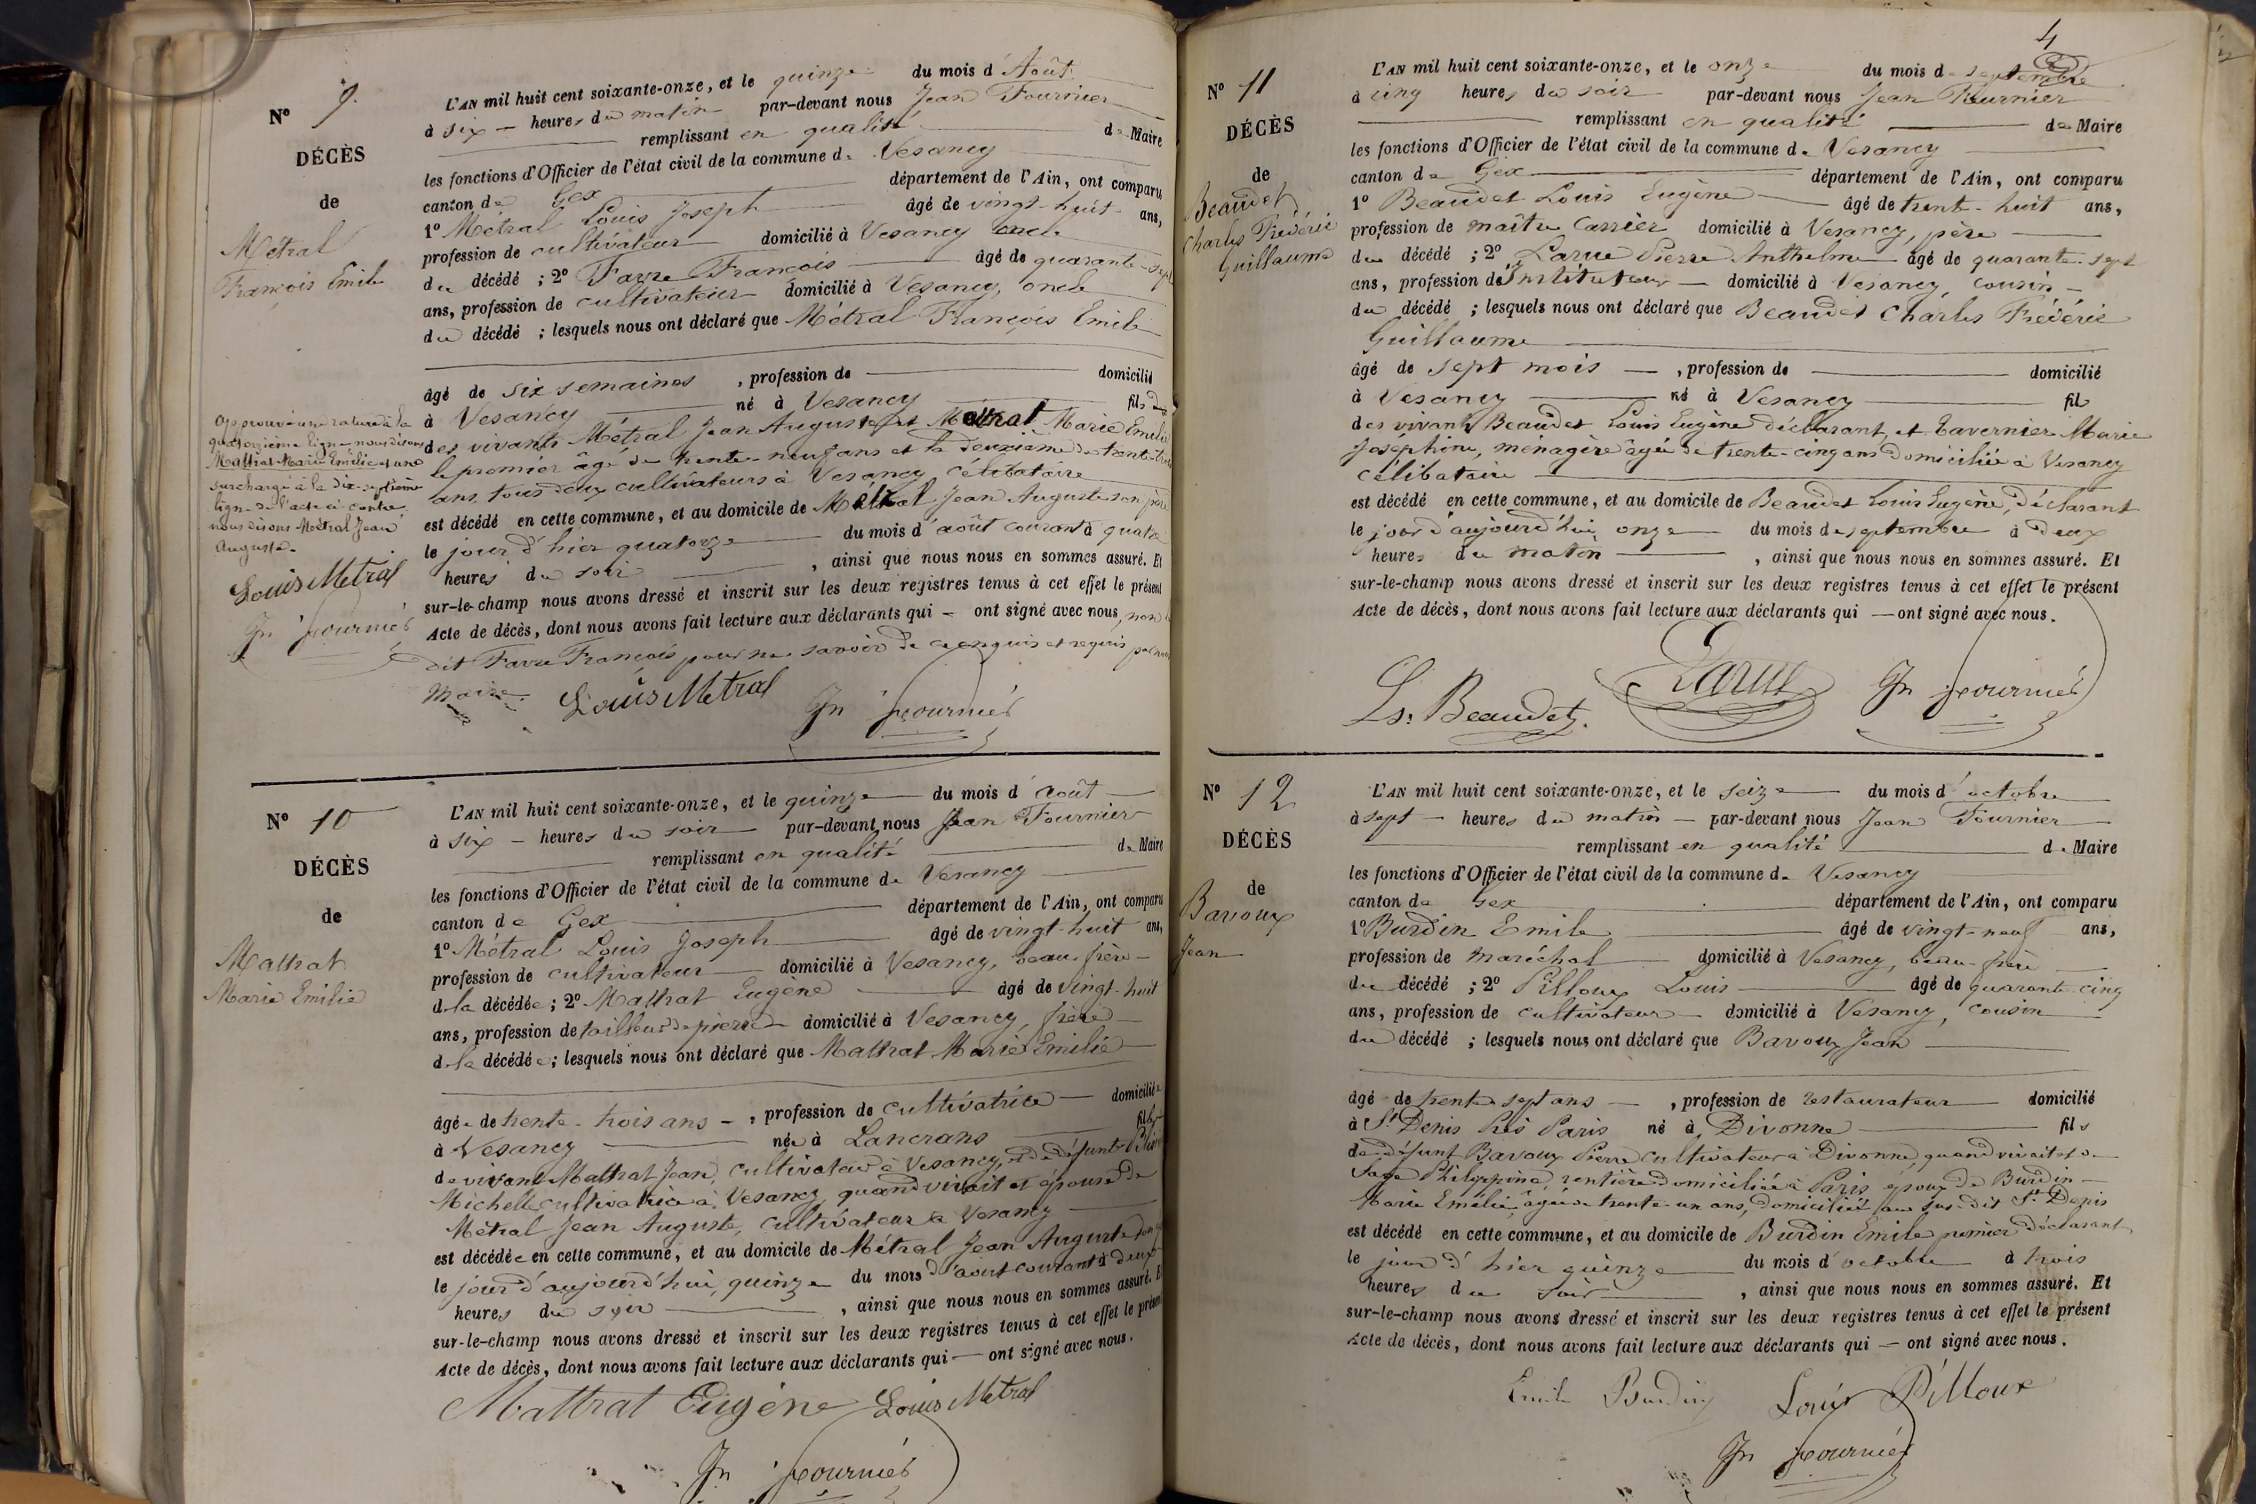 N° 9.
DÉCÈS
de
Métral
François Emile
L'AN mil huit cent soixante-onze, et le quinze du mois d'Août
à six heures du matin par-devant nous Jean Fournier
remplissant en qualité de Maire
les fonctions d'Officier de l'état civil de la commune de Vesancy
canton de Gex département de l'Ain, ont comparu
1° Métral Louis Joseph âgé de vingt-huit ans,
profession de cultivateur domicilié à Vesancy oncle
du décédé ; 2° Favre François âgé de quarante-sept
ans, profession de cultivateur domicilié à Vesancy, oncle
du décédé ; lesquels nous ont déclaré que Métral François Emile
âgé de six semaines, profession de domicilié
à Vesancy né à Vesancy fils
des vivants Métral Jean Auguste et Mattrat Marie Emilie
le premier âgé de trente-neuf ans et la deuxième de trente-trois
ans, tous deux cultivateurs à Vesancy, célibataire
est décédé en cette commune, et au domicile de Métral Jean Auguste son père
le jour d'hier quatorze du mois d'août courant à quatre
heures du soir, ainsi que nous nous en sommes assuré. Et
sur-le-champ nous avons dressé et inscrit sur les deux registres tenus à cet effet le présent
Acte de décès, dont nous avons fait lecture aux déclarants qui — ont signé avec nous, non le
dit Favre François pour ne savoir de ce enquis et requis par nous
Maire.
Louis Métral Jn Fournier
Approuvé une rature à la
quatorzième ligne nous disons
Mattrat Marie Emilie et une
surcharge à la dix-septième
ligne de l'acte ci-contre
nous disons Métral Jean
Auguste.
Louis Métral
Jn Fournier
N° 10
DÉCÈS
de
Mattrat
Marie Emilie
L'AN mil huit cent soixante-onze, et le quinze du mois d'août
à six — heures du soir par-devant nous Jean Fournier
remplissant en qualité de Maire
les fonctions d'Officier de l'état civil de la commune de Vesancy
canton de Gex département de l'Ain, ont comparu
1° Métral Louis Joseph âgé de vingt-huit ans,
profession de cultivateur domicilié à Vesancy, beau-frère
de la décédée ; 2° Mattrat Eugène âgé de vingt-huit
ans, profession de tailleur de pierre domicilié à Vesancy, frère
de la décédée ; lesquels nous ont déclaré que Mattrat Marie Emilie
âgée de trente-trois ans, profession de cultivatrice domiciliée
à Vesancy née à Lancrans fille
de vivant Mattrat Jean, cultivateur à Vesancy, et de défunte
Michelle cultivatrice à Vesancy, quand vivait et épouse de
Métral Jean Auguste, cultivateur à Vesancy
est décédée en cette commune, et au domicile de Métral Jean Auguste son
le jour d'aujourd'hui, quinze du mois d'août courant à deux
heures du soir, ainsi que nous nous en sommes assuré. Et
sur-le-champ nous avons dressé et inscrit sur les deux registres tenus à cet effet le présent
Acte de décès, dont nous avons fait lecture aux déclarants qui — ont signé avec nous.
Mattrat Eugène Louis Métral
Jn Fournier
4
N° 11
DÉCÈS
de
Beaudet
Charles Frédéric
Guillaume
L'AN mil huit cent soixante-onze, et le onze du mois de septembre
à cinq heures du soir par-devant nous Jean Fournier
remplissant en qualité de Maire
les fonctions d'Officier de l'état civil de la commune de Vesancy
canton de Gex département de l'Ain, ont comparu
1° Beaudet Louis Eugène âgé de trente-huit ans,
profession de maître carrier domicilié à Vesancy, père
du décédé ; 2° Larue Pierre Anthelme âgé de quarante-sept
ans, profession d'Instituteur — domicilié à Vesancy, cousin
du décédé ; lesquels nous ont déclaré que Beaudet Charles Frédéric
Guillaume
âgé de sept mois —, profession de domicilié
à Vesancy né à Vesancy fils
des vivants Beaudet Louis Eugène déclarant, et Tavernier Marie
Joséphine, ménagère âgée de trente-cinq ans domiciliée à Vesancy
célibataire
est décédé en cette commune, et au domicile de Beaudet Louis Eugène, déclarant
le jour d'aujourd'hui onze du mois de septembre à deux
heures du matin, ainsi que nous nous en sommes assuré. Et
sur-le-champ nous avons dressé et inscrit sur les deux registres tenus à cet effet le présent
Acte de décès, dont nous avons fait lecture aux déclarants qui — ont signé avec nous.
Ls. Beaudet. Larue Jn Fournier
N° 12
DÉCÈS
de
Bavoux
Jean
L'AN mil huit cent soixante-onze, et le seize du mois d'octobre
à sept — heures du matin — par-devant nous Jean Fournier
remplissant en qualité de Maire
les fonctions d'Officier de l'état civil de la commune de Vesancy
canton de Gex département de l'Ain, ont comparu
1° Burdin Emile âgé de vingt-neuf ans,
profession de maréchal domicilié à Vesancy, beau-frère
du décédé ; 2° Pilloux Louis âgé de quarante-cinq
ans, profession de cultivateur domicilié à Vesancy, cousin
du décédé ; lesquels nous ont déclaré que Bavoux Jean
âgé de trente-sept ans —, profession de restaurateur domicilié
à St Denis Près Paris né à Divonne fils
de défunt Bavoux Pierre cultivateur à Divonne, quand vivait et de
Philippine, rentière domiciliée à Paris, époux de Burdin
Marie Emélie, âgée de trente-un ans, domiciliée au sus-dit St Denis
est décédé en cette commune, et au domicile de Burdin Emile premier déclarant
le jour d'hier quinze du mois d'octobre à trois
heures du soir, ainsi que nous nous en sommes assuré. Et
sur-le-champ nous avons dressé et inscrit sur les deux registres tenus à cet effet le présent
Acte de décès, dont nous avons fait lecture aux déclarants qui — ont signé avec nous.
Emile Burdin Louis Pilloux
Jn Fournier